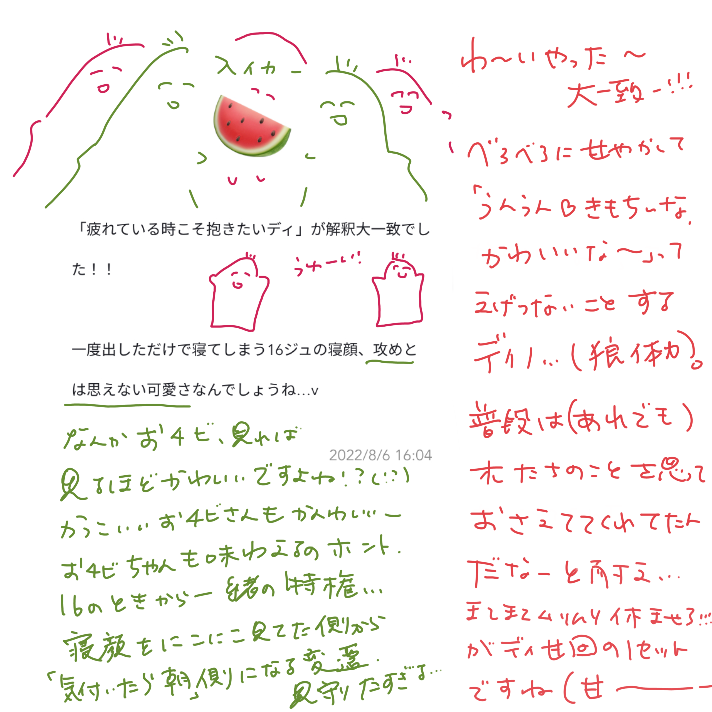 スイカー
「疲れている時こそ抱きたいディ」が解釈大一致でし
た！！
うわーい!!
一度出しただけで寝てしまう16ジュの寝顔、攻めと
は思えない可愛さなんでしょうね…v
なんか お4ビ、見れば
2022/8/6 16:04
見るほど かわいいですよね!?(!?)
かっこいい お4ビさんも かんわいいー
お4ビちゃんも味わえるの ホント.
16のときから一緒の特権…
寝顔をにこにこ見てた側から
「気付いたら 朝」側になる変遷.
見守りたすぎる…
わ～いやった～
大一致ー!!!
べろべろに甘やかして
「うんうん♡きもちいな、
かわいいな～」って
えげつないこと する
ディノ…(狼体力)。
普段は(あれでも)
水たちのことを思って
おさえててくれてたん
だなーと
まてまて ムリムリ 休ませろ!!!
がディ
の1セット
ですね(甘 ー